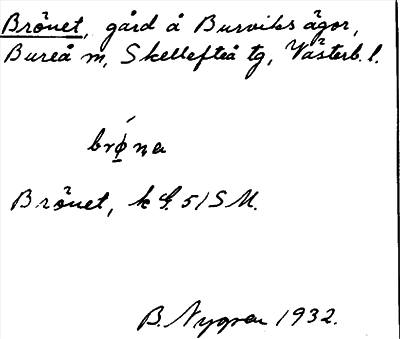 Brånet, gård å Burviks ägor,
Bureå sn, Skellefteå tg, Västerb. l.
brø̀na
Brånet, k G. 51 S M.
B. Nygren 1932.